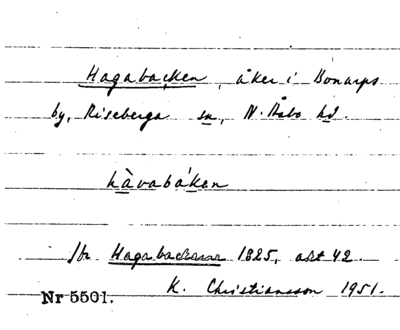 Hagabacken, åker i Bonarps
by, Riseberga sn, N. Åsbo hd.
hàvabáken
Jfr Hagabackarna 1825, akt 42.
K. Christiansson 1951.
Nr 5501.